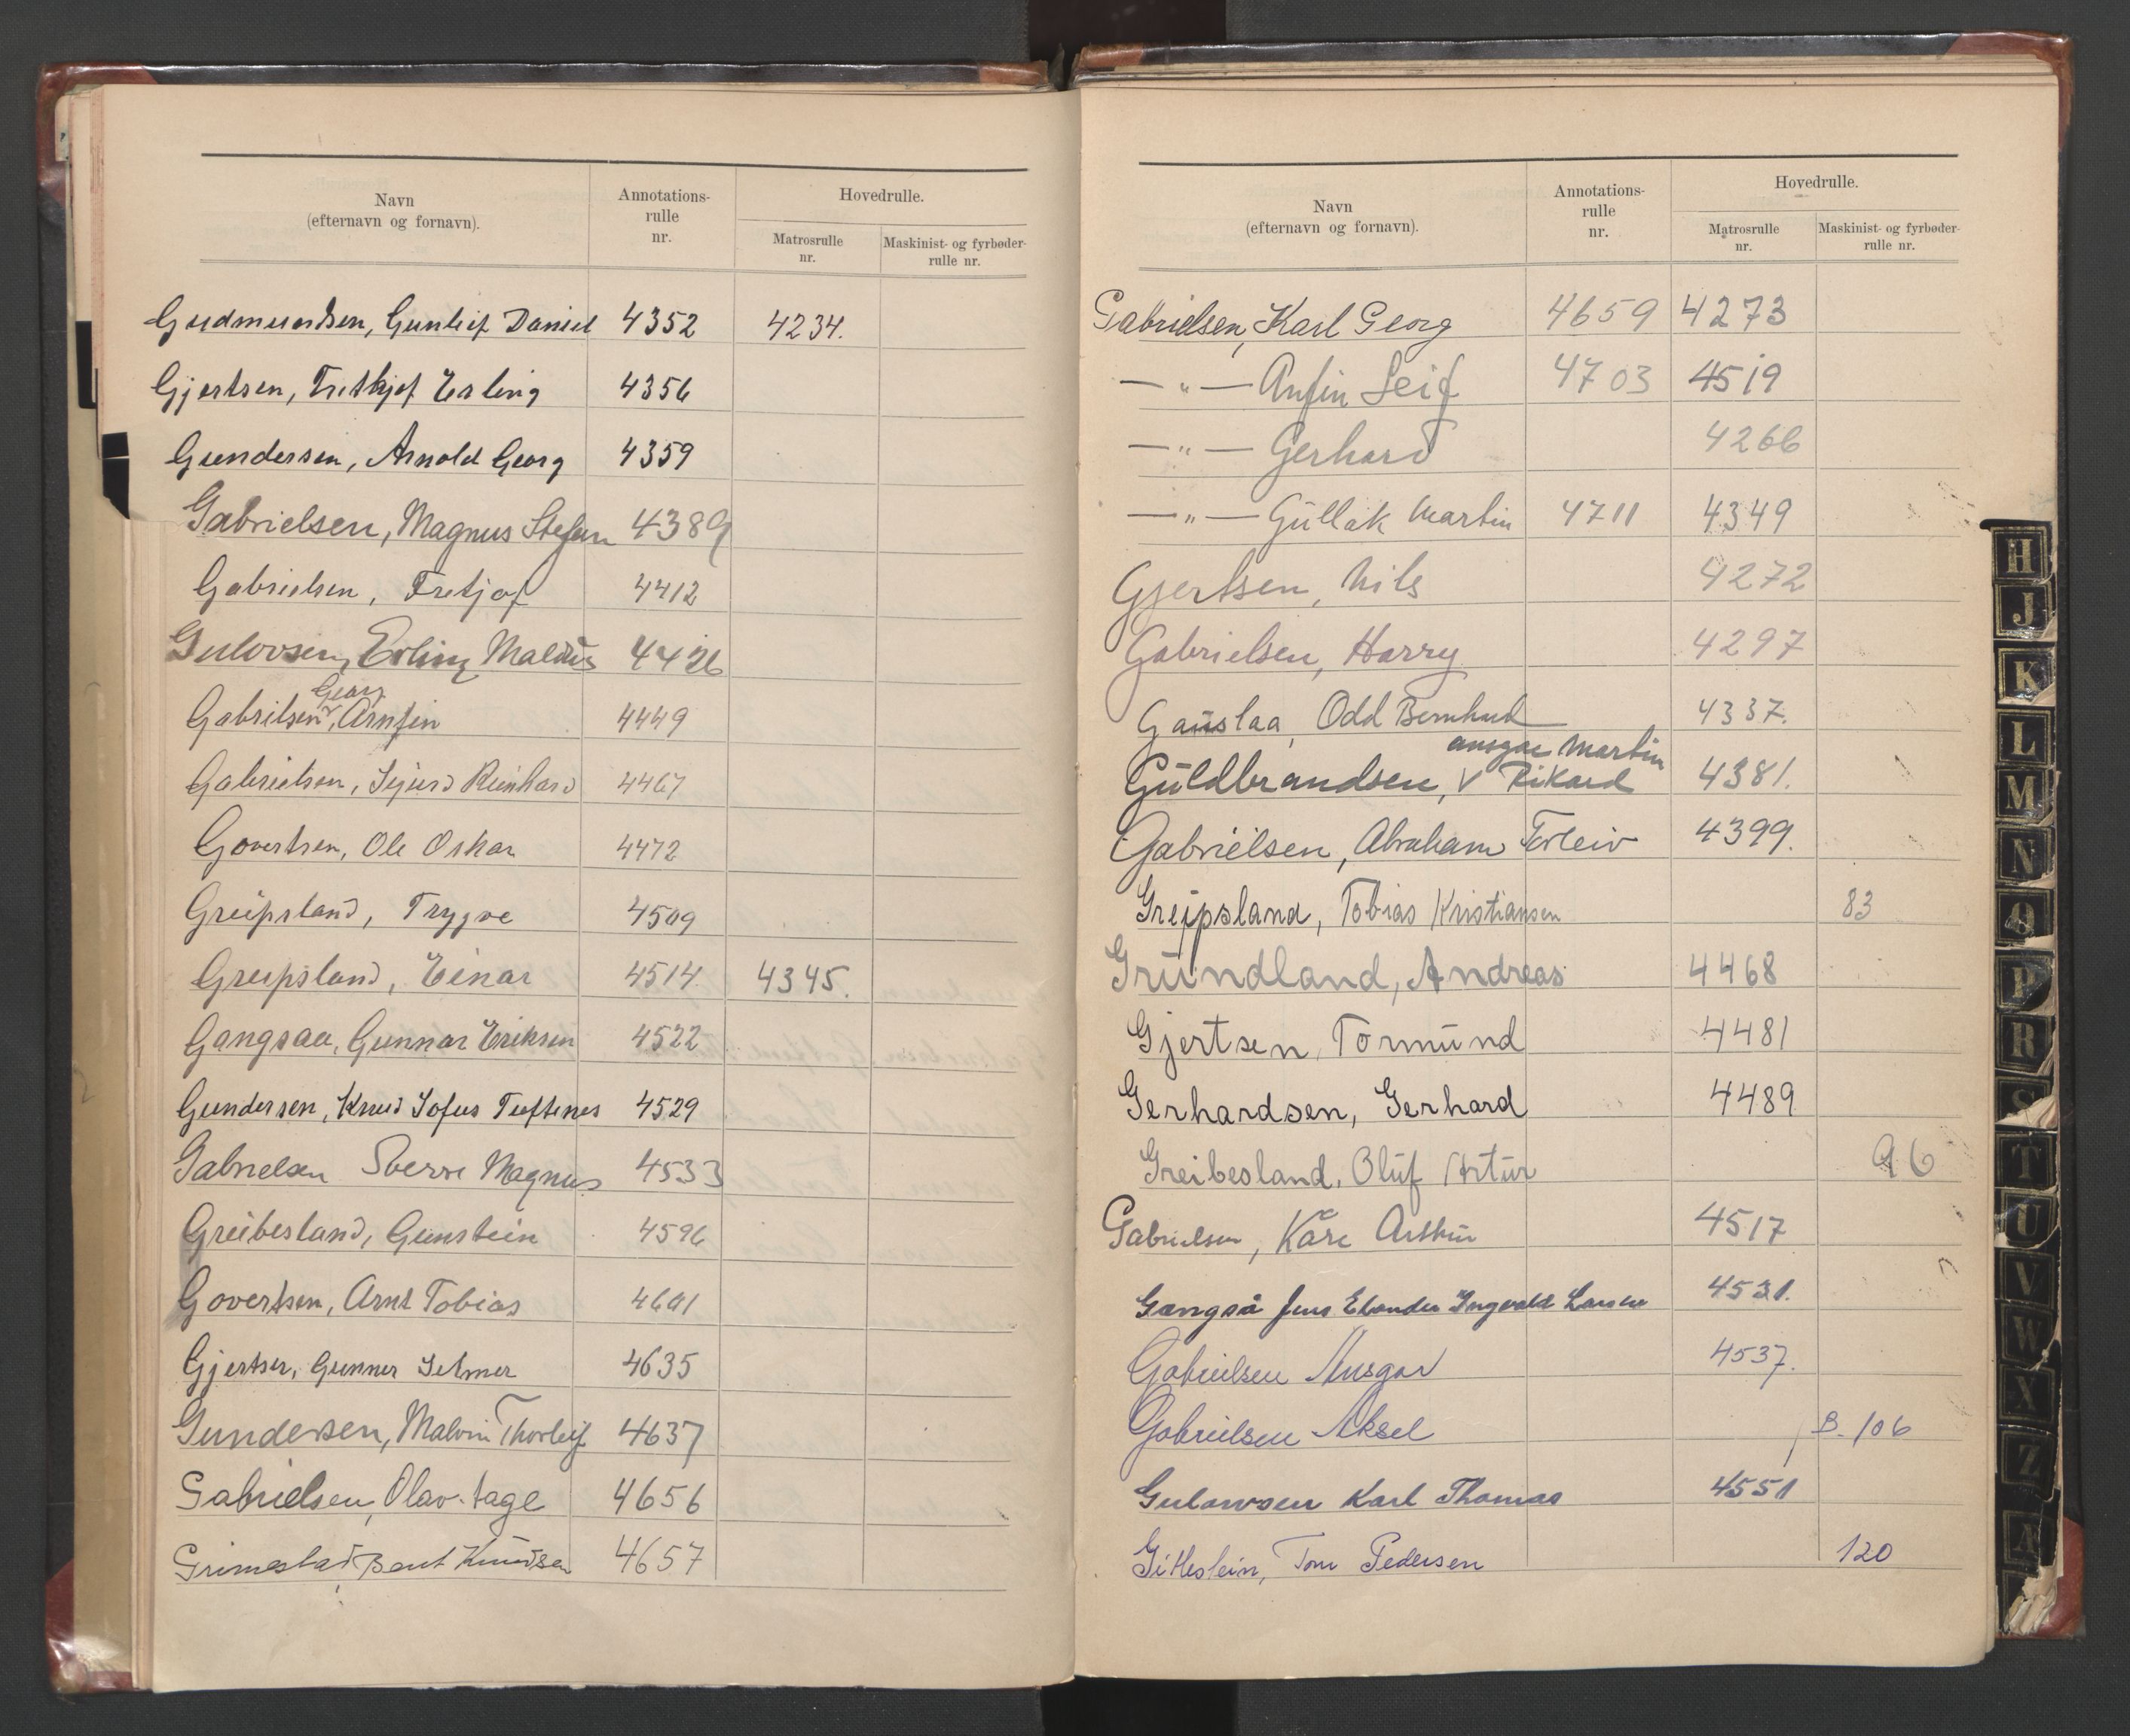 Navn
(efternavn og fornavn).
Annotations-
rulle
nr.
Hovedrulle.
Matrosrulle
nr.
Maskinist- og fyrbøder-
rulle nr.
Gudmundsen, Gunleif Daniel 4352 4234.
Gjertsen, Frithjof Erling 4356
Gundersen, Arnold Georg 4359
Gabrielsen, Magnus Stefan 4389
Gabrielsen, Fritjof 4412
Gulovsen, Erling 4426
Georg
Gabrilsen, Arnfin 4449
Gabrielsen, Sigurd Reinhard 4467
Govertsen, Ole Oskar 4472
Greipsland, Trygve 4509
Greipsland, Einar 4514 4345.
Gangsaa, Gunnar Eriksen 4522
Gundersen, Knud Sofus Tuftenes 4529
Gabrielsen Sverre Magnus 4533
Greibesland, Gunstein 4596
Govertsen, Arnt Tobias 4601
Gjertsen, Gunner Selmer 4635
Gundersen, Malvin Thorleif 4637
Gabrielsen, Olav tage 4656
Grimestad, Bent Knudsen 4657
Navn
(efternavn og fornavn).
Annotations-
rulle
nr.
Hovedrulle.
Matrosrulle
nr.
Maskinist- og fyrbøder-
rulle nr.
Gabrielsen, Karl Georg 4659 4273
— " — Anfin Leif 4703 4519
— " — Gerhard 4266
— " — Gullak Martin 4711 4349
Gjertsen, Nils 4272
Gabrielsen, Harry 4297
Gauslaa, Odd Bernhard 4337.
ansgar Martin
Guldbrandsen, V Rikard 4381.
Gabrielsen, Abraham Torleiv 4399.
Greipsland, Tobias Kristiansen 83
Grundland, Andreas 4468
Gjertsen, Tormund 4481
Gerhardsen, Gerhard 4489
Greibesland, Oluf Artur 96
Gabrielsen, Kåre Arthur 4517
Gangså Jens Elander Ingvald Larsen 4531.
Gabrielsen Ansgar 4537.
Gabrielsen Aksel B. 106
Gulowsen Karl Thomas 4551
Gitlestein, Tom Pedersen 120
H
J
K
L
M
N
O
P
R
S
T
U
V
W
X
Z